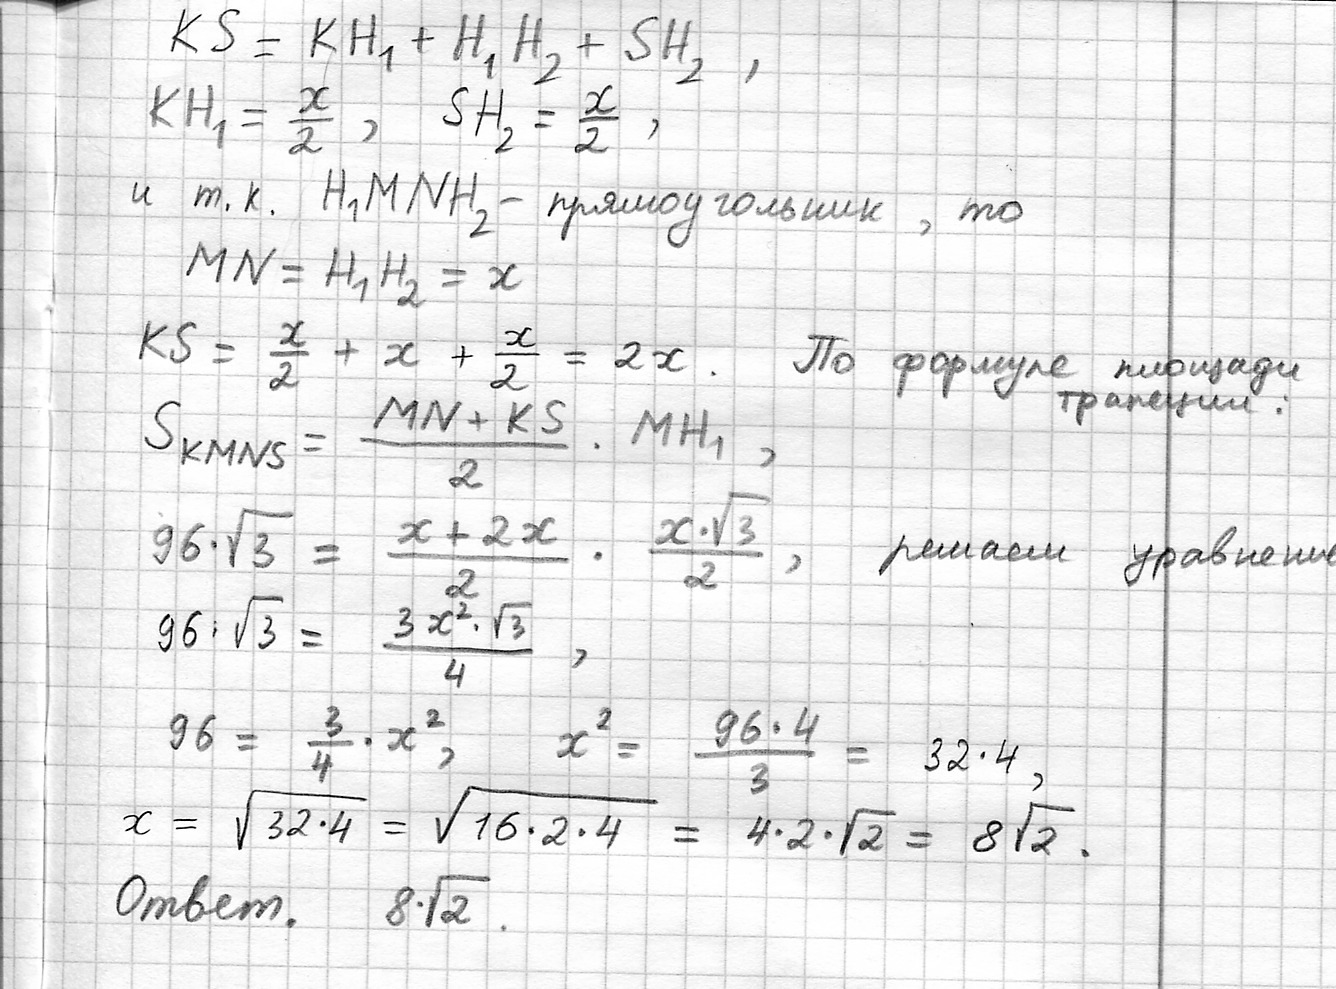 KS = KH₁ + H₁H₂ + SH₂ ,
KH₁ = x/2 , SH₂ = x/2 ,
и т.к. H₁MNH₂ - прямоугольник , то
MN = H₁H₂ = x
KS = x/2 + x + x/2 = 2x . По формуле площади
трапеции :
S_KMNS = (MN + KS)/2 · MH₁ ,
96·√3 = (x + 2x)/2 · (x·√3)/2 , решаем уравнение
96·√3 = (3x²·√3)/4 ,
96 = 3/4 · x² , x² = (96·4)/3 = 32·4 ,
x = √(32·4) = √(16·2·4) = 4·2·√2 = 8√2 .
Ответ. 8·√2 .